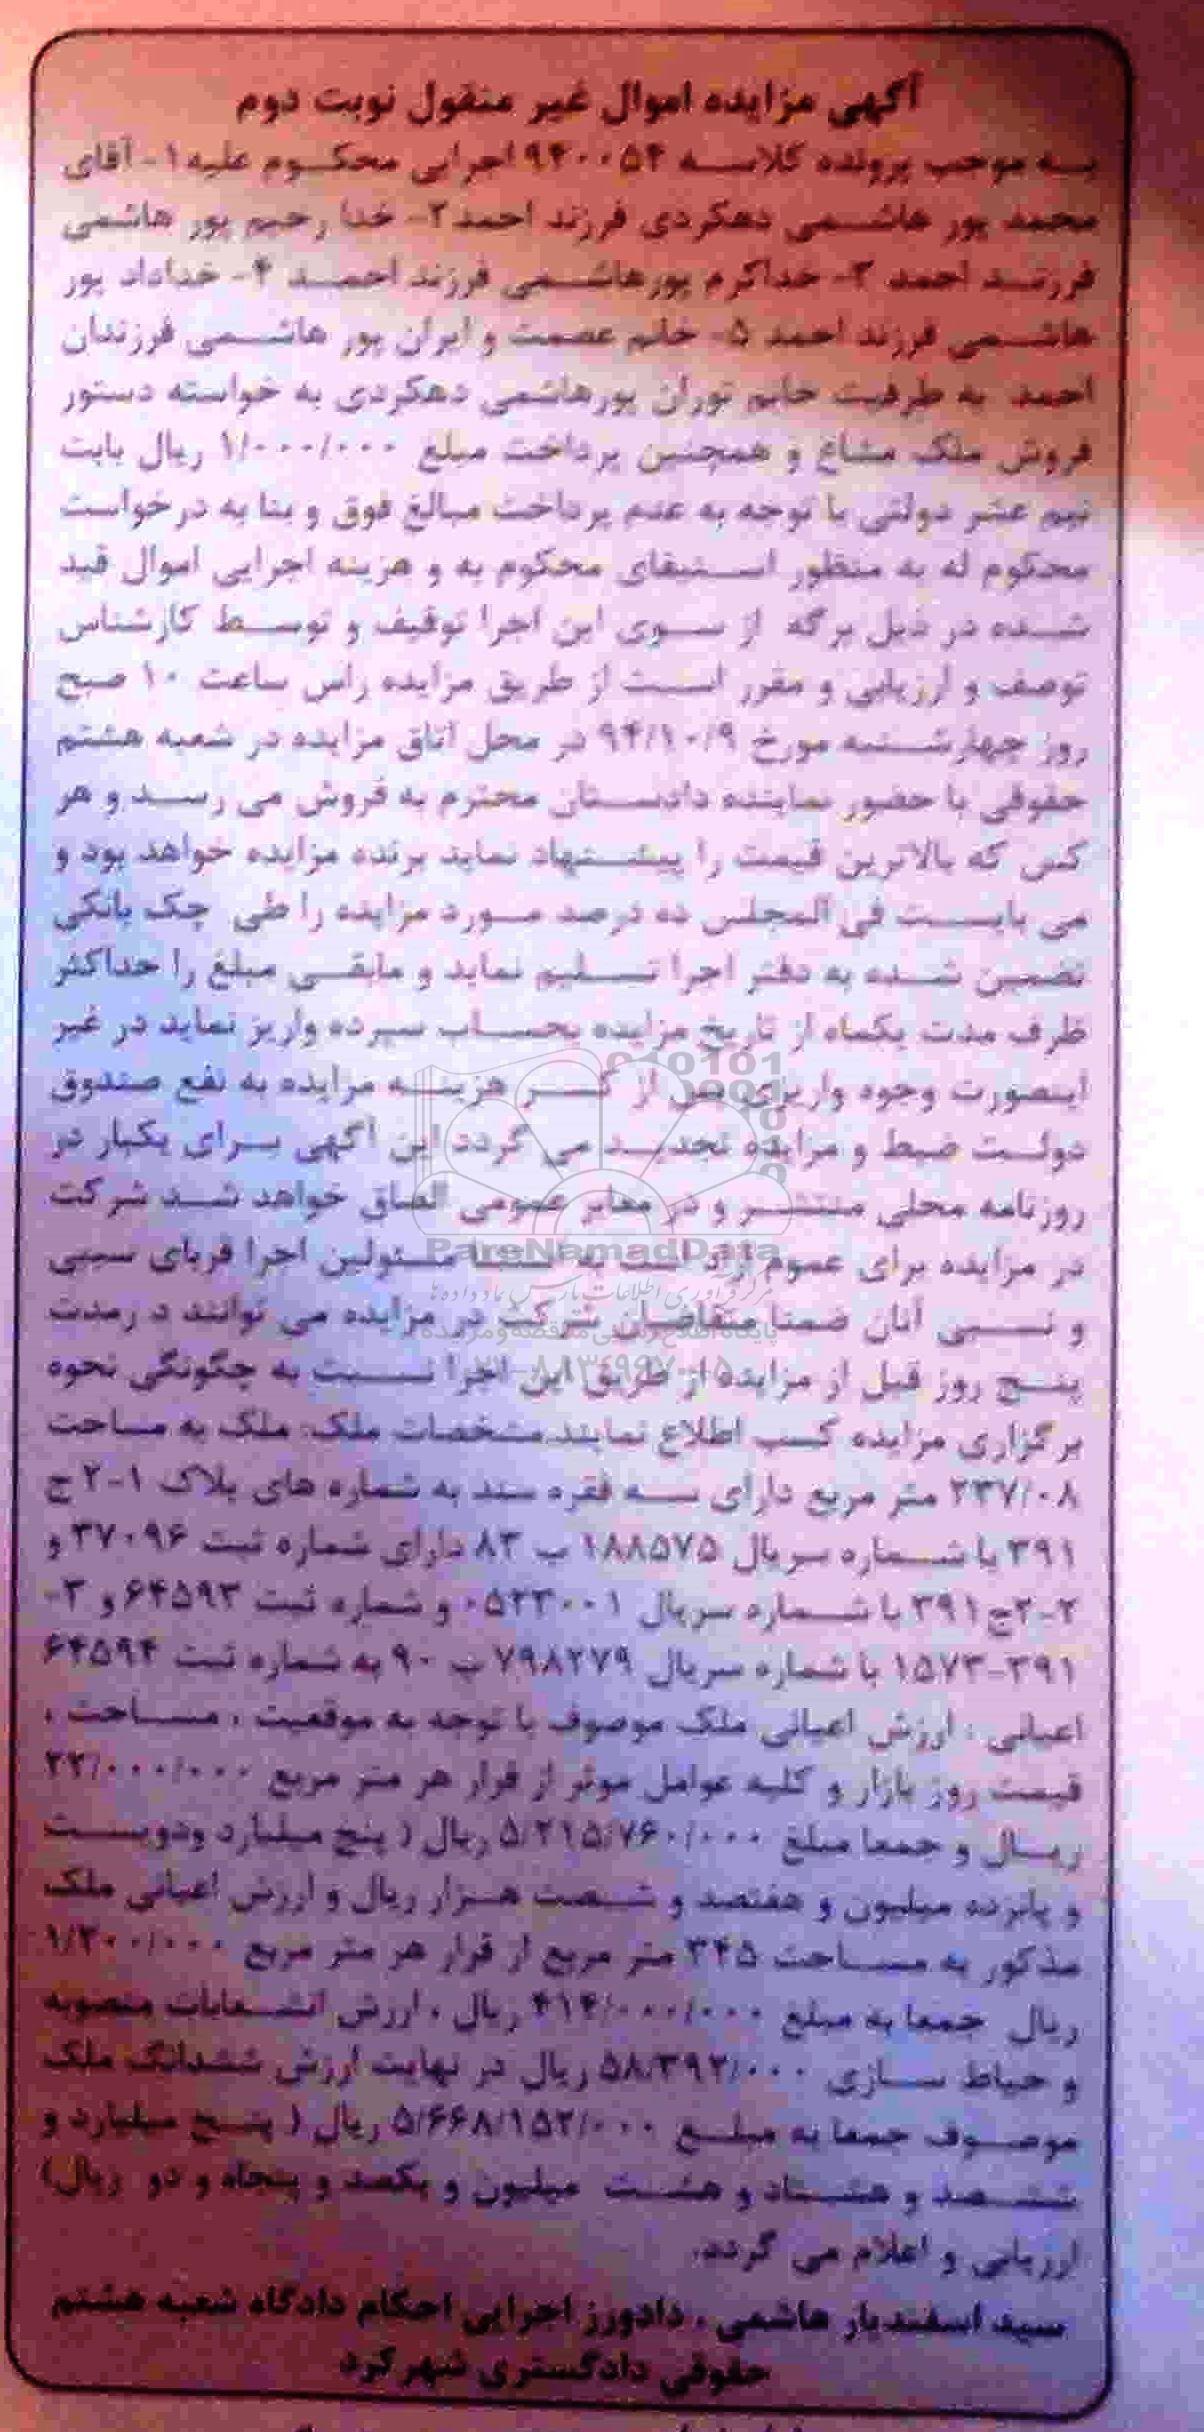 آگهی مزایده اموال غیر منقول نوبت دوم
به موجب پرونده کلاسه ۹۴۰۰۵۴ اجرایی محکوم علیه ۱- آقای
محمد پور هاشمی دهکردی فرزند احمد ۲- خدا رحیم پور هاشمی
فرزند احمد ۳- خداکرم پورهاشمی فرزند احمد ۴- خداداد پور
هاشمی فرزند احمد ۵- خانم عصمت و ایران پور هاشمی فرزندان
احمد به طرفیت خانم توران پورهاشمی دهکردی به خواسته دستور
فروش ملک مشاع و همچنین پرداخت مبلغ ۱/۰۰۰/۰۰۰ ریال بابت
نیم عشر دولتی با توجه به عدم پرداخت مبالغ فوق و بنا به درخواست
محکوم له به منظور استیفای محکوم به و هزینه اجرایی اموال قید
شده در ذیل برگه از سوی این اجرا توقیف و توسط کارشناس
توصف و ارزیابی و مقرر است از طریق مزایده راس ساعت ۱۰ صبح
روز چهارشنبه مورخ ۹۴/۱۰/۹ در محل اتاق مزایده در شعبه هشتم
حقوقی با حضور نماینده دادستان محترم به فروش می رسد و هر
کس که بالاترین قیمت را پیشنهاد نماید برنده مزایده خواهد بود و
می بایست فی المجلس ده درصد مورد مزایده را طی چک بانکی
تضمین شده به دفتر اجرا تسلیم نماید و مابقی مبلغ را حداکثر
ظرف مدت یکماه از تاریخ مزایده بحساب سپرده واریز نماید در غیر
اینصورت وجوه واریزی پس از کسر هزینه مزایده به نفع صندوق
دولت ضبط و مزایده تجدید می گردد این آگهی برای یکبار در
روزنامه محلی منتشر و در معابر عمومی الصاق خواهد شد شرکت
در مزایده برای عموم آزاد است به استثنا مسئولین اجرا قربای سببی
و نسبی آنان ضمنا متقاضیان شرکت در مزایده می توانند د رمدت
پنج روز قبل از مزایده از طریق این اجرا نسبت به چگونگی نحوه
برگزاری مزایده کسب اطلاع نمایند. مشخصات ملک: ملک به مساحت
۲۳۷/۰۸ متر مربع دارای سه فقره سند به شماره های پلاک ۱-۲ ج
۳۹۱ با شماره سریال ۱۸۸۵۷۵ ب ۸۳ دارای شماره ثبت ۳۷۰۹۶ و
۲-۲ج ۳۹۱ با شماره سریال ۰۵۲۳۰۰۱ و شماره ثبت ۶۴۵۹۳ و ۳-
۱۵۷۳-۳۹۱ با شماره سریال ۷۹۸۲۷۹ ب ۹۰ به شماره ثبت ۶۴۵۹۴
اعیانی : ارزش اعیانی ملک موصوف با توجه به موقعیت ، مساحت ،
قیمت روز بازار و کلیه عوامل موثر از قرار هر متر مربع ۲۲/۰۰۰/۰۰۰
ریال و جمعا مبلغ ۵/۲۱۵/۷۶۰/۰۰۰ ریال ( پنج میلیارد ودویست
و پانزده میلیون و هفتصد و شصت هزار ریال و ارزش اعیانی ملک
مذکور به مساحت ۳۴۵ متر مربع از قرار هر متر مربع ۱/۲۰۰/۰۰۰
ریال جمعا به مبلغ ۴۱۴/۰۰۰/۰۰۰ ریال ، ارزش انشعابات منصوبه
و حیاط سازی ۵۸/۳۹۲/۰۰۰ ریال در نهایت ارزش ششدانگ ملک
موصوف جمعا به مبلغ ۵/۶۶۸/۱۵۲/۰۰۰ ریال ( پنج میلیارد و
ششصد و هشتاد و هشت میلیون و یکصد و پنجاه و دو ریال)
ارزیابی و اعلام می گردد.
سید اسفندیار هاشمی ، دادورز اجرایی احکام دادگاه شعبه هشتم
حقوقی دادگستری شهرکرد
ParsNamadData